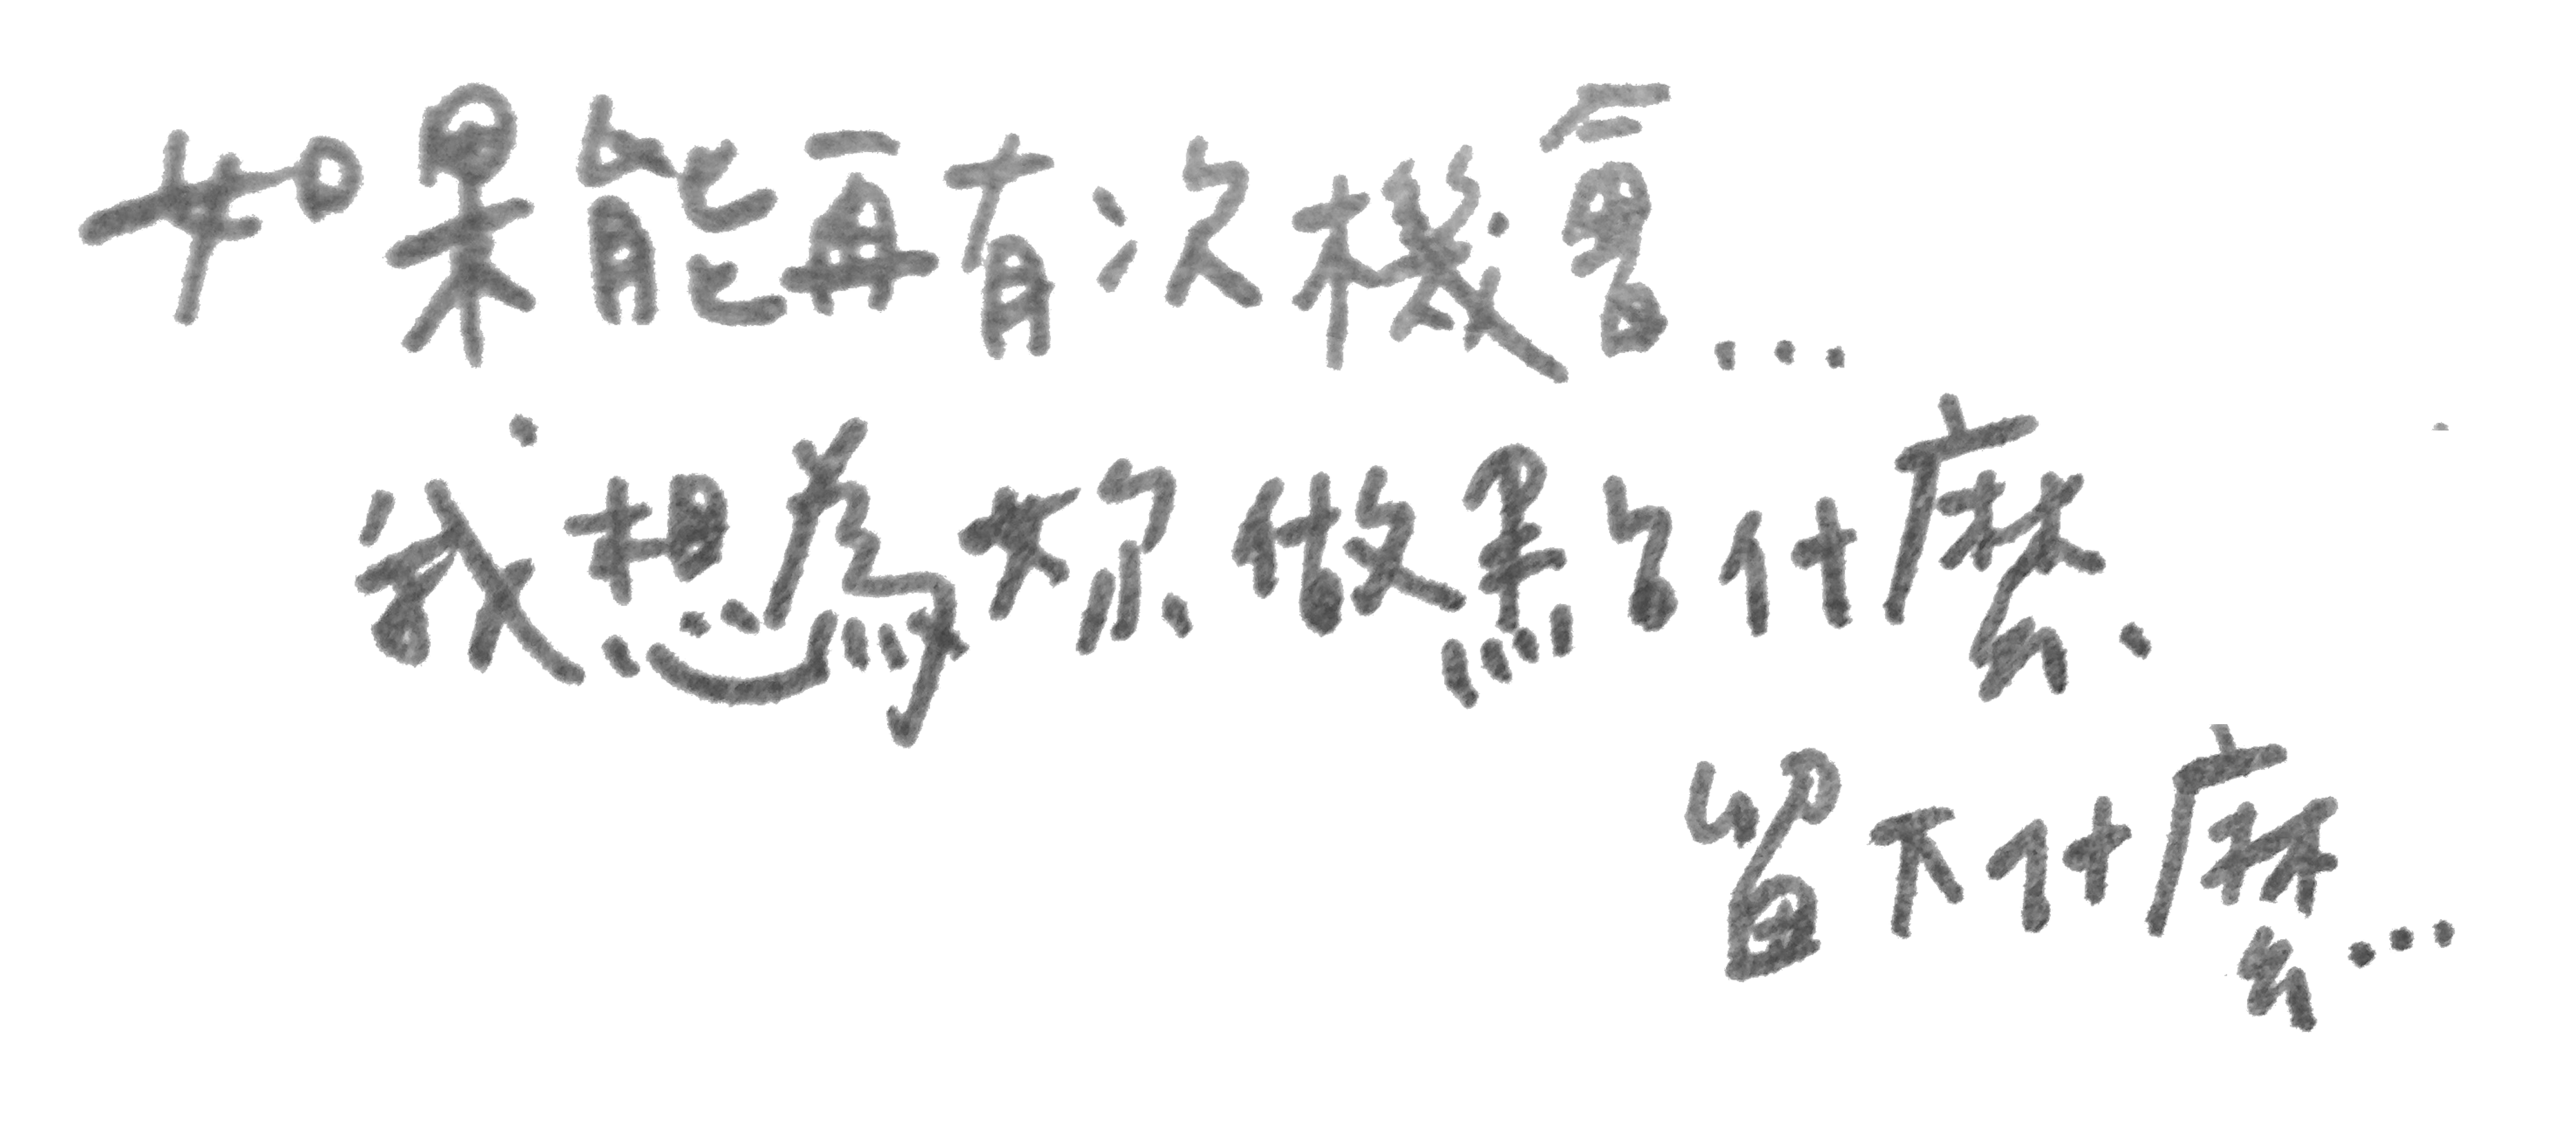 如果能再有次機會...
我想為妳做點什麼、
留下什麼...